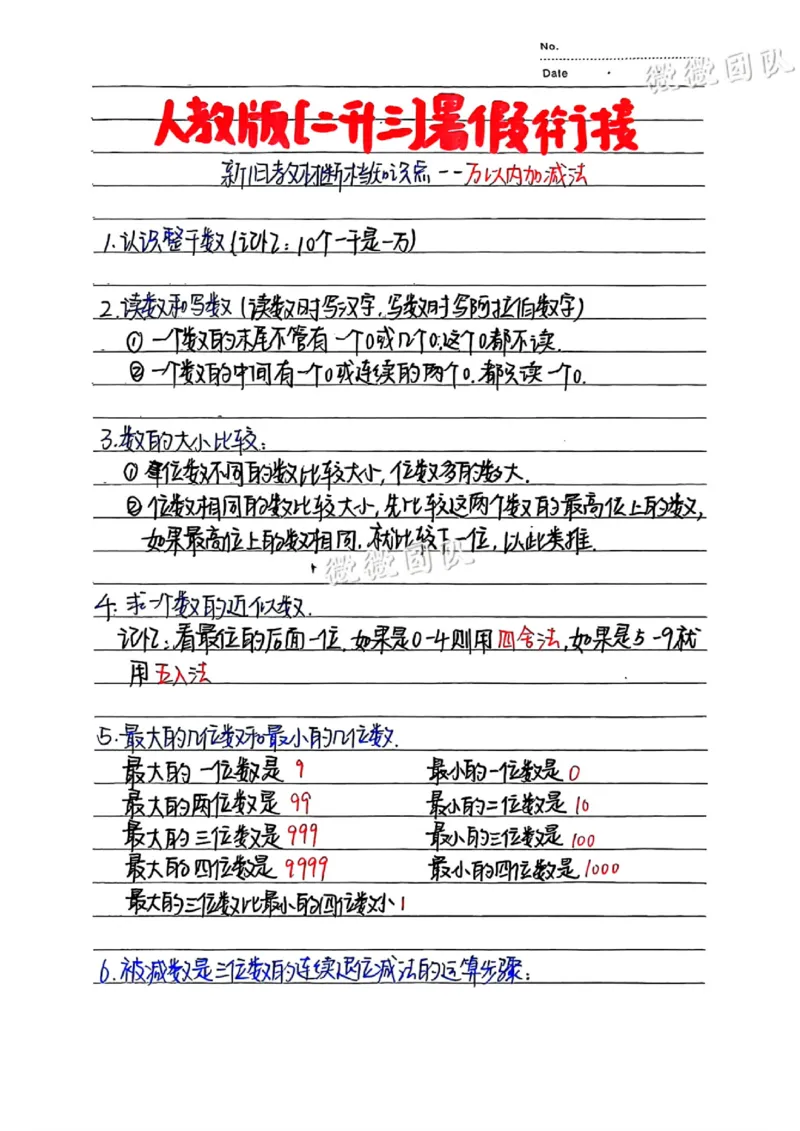 No.
Date
微微团队
人教版[二升三]暑假衔接
新旧教材断档知识点--万以内加减法
1.认识整千数(记忆:10个一千是一万)
2.读数和写数(读数时写汉字,写数时写阿拉伯数字)
①一个数的末尾不管有一个0或几个0,这个0都不读.
②一个数的中间有一个0或连续的两个0.都只读一个0.
3.数的大小比较:
①位数不同的数比较大小,位数多的数大.
②位数相同的数比较大小,先比较这两个数的最高位上的数,
如果最高位上的数相同.就比较下一位,以此类推.
微微团队
4.求一个数的近似数.
记忆:看最位的后面一位.如果是0-4则用四舍法,如果是5-9就
用五入法
5.最大的几位数和最小的几位数.
最大的一位数是 9 最小的一位数是 0
最大的两位数是 99 最小的二位数是 10
最大的三位数是 999 最小的三位数是 100
最大的四位数是 9999 最小的四位数是 1000
最大的三位数比最小的四位数小1
6.被减数是三位数的连续退位减法的运算步骤: